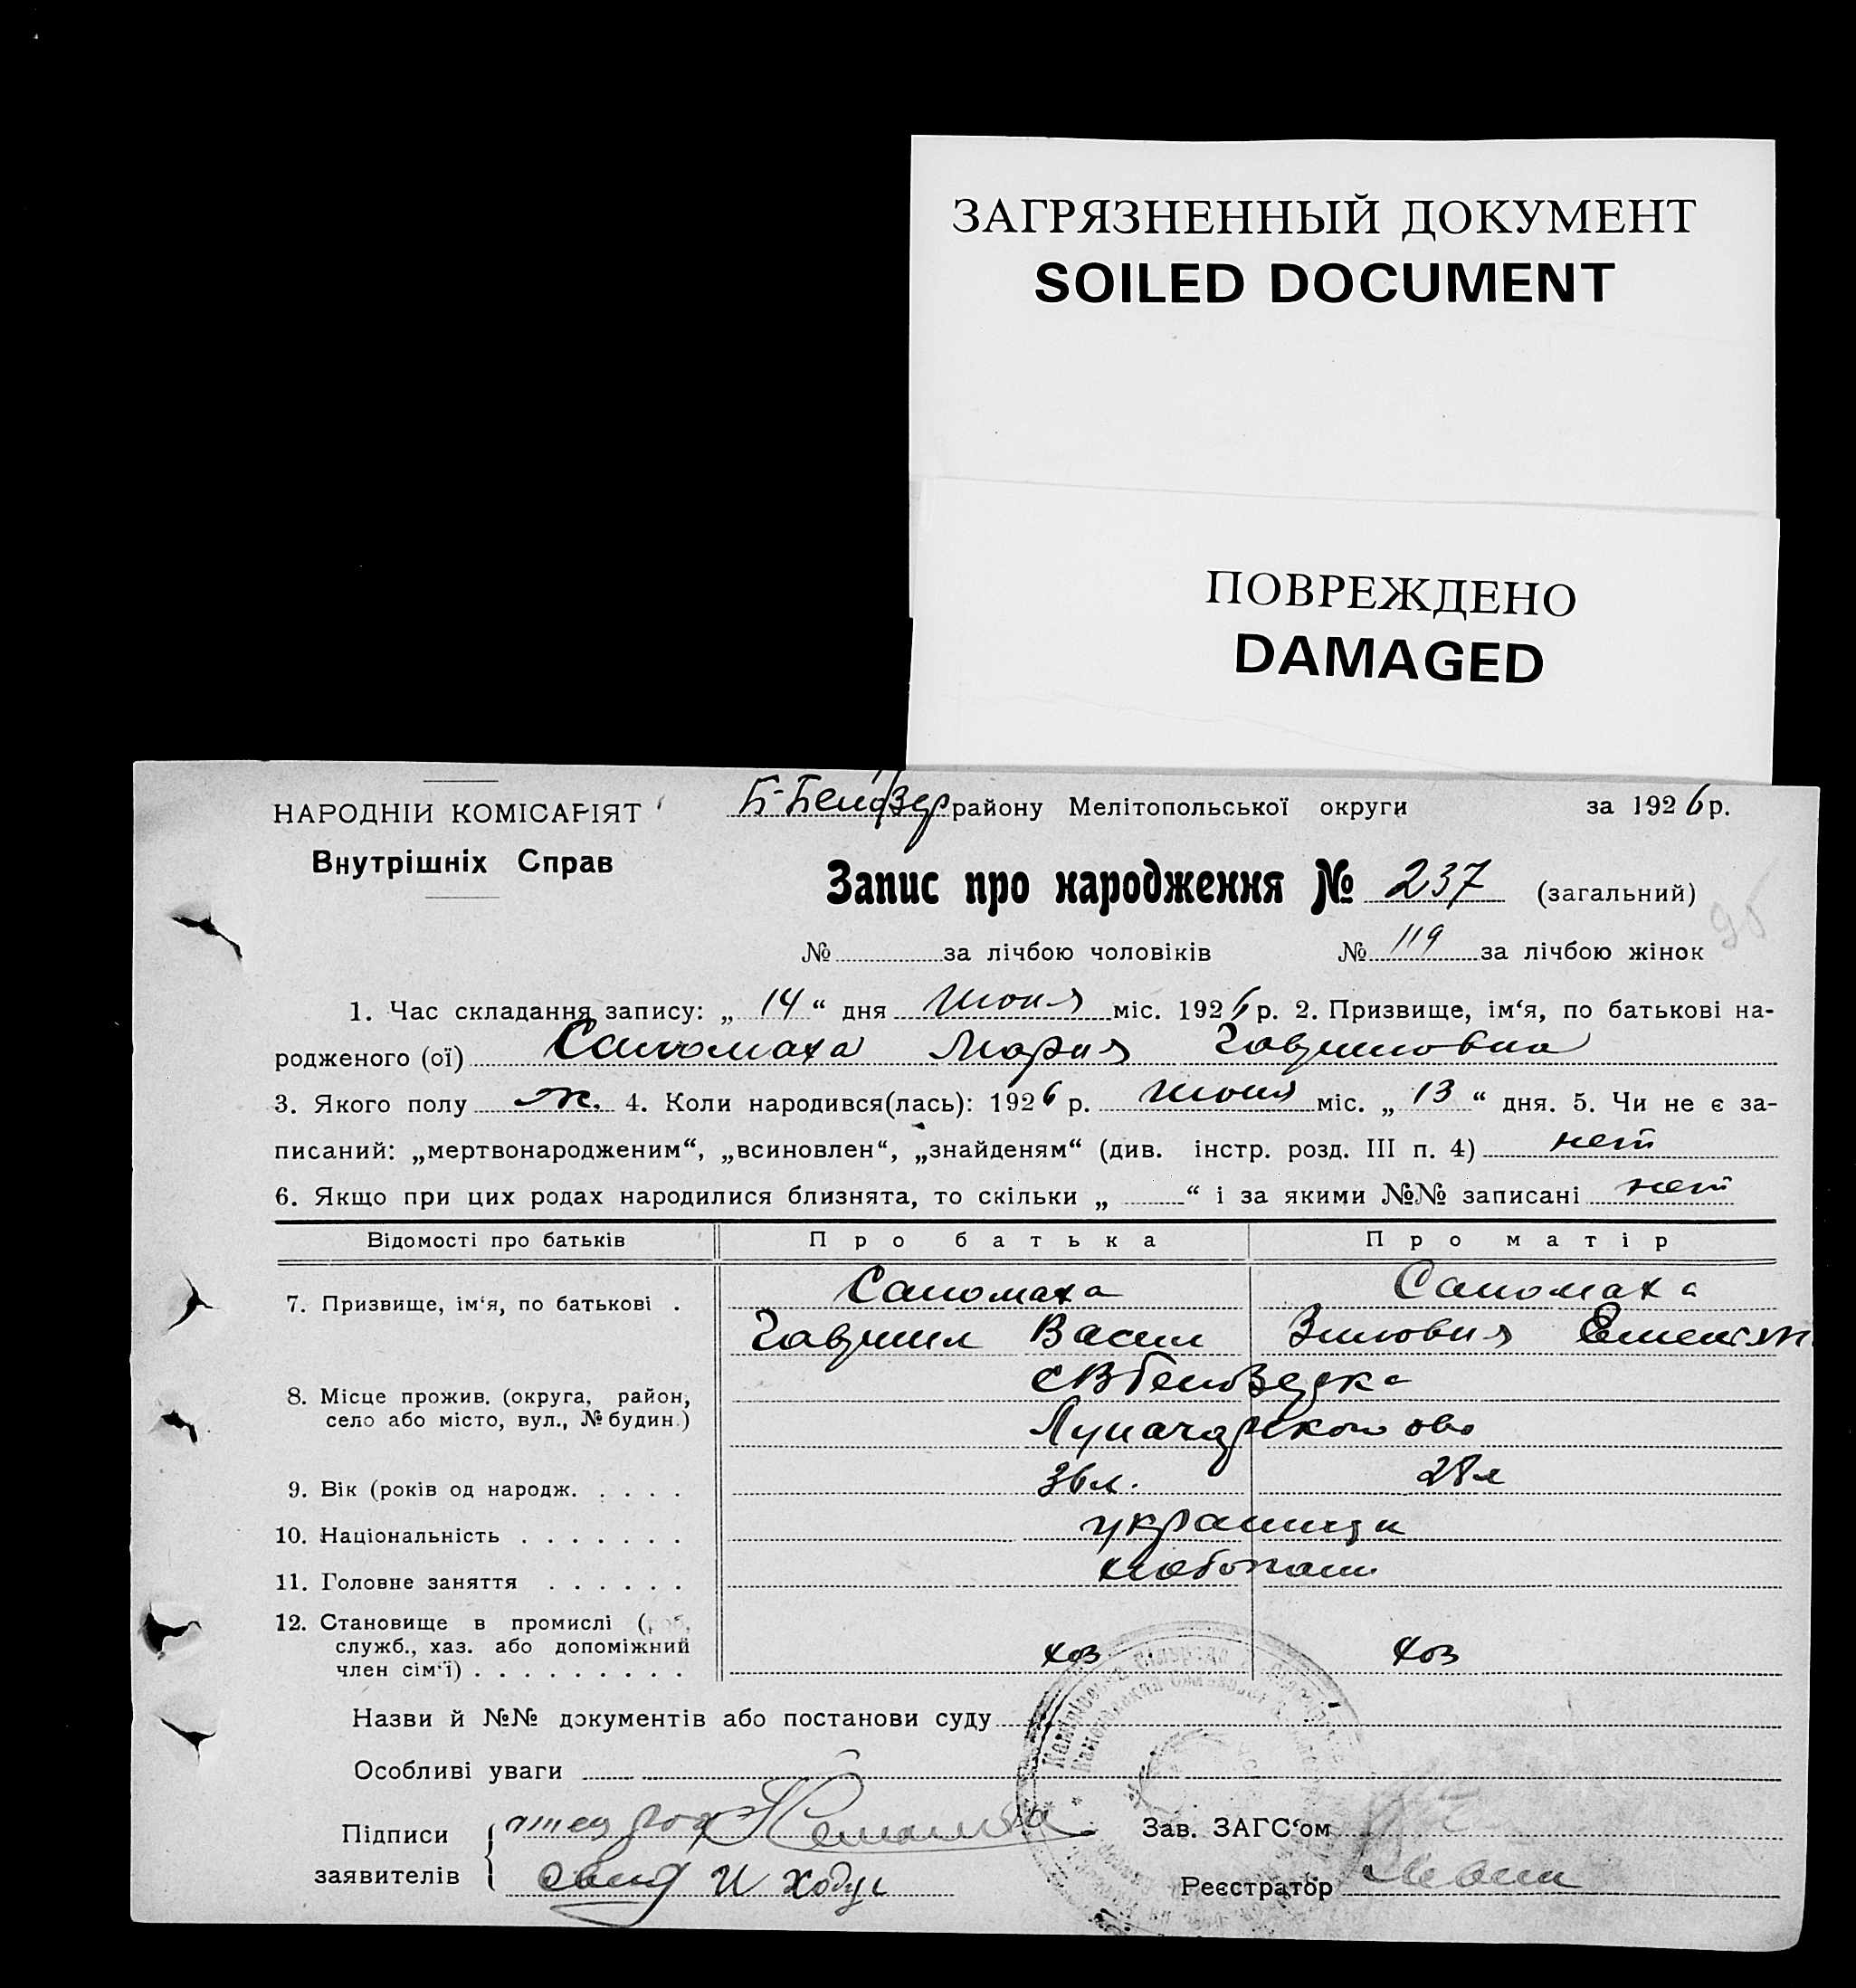 ЗАГРЯЗНЕННЫЙ ДОКУМЕНТ
SOILED DOCUMENT
ПОВРЕЖДЕНО
DAMAGED
НАРОДНІЙ КОМІСАРІЯТ
Внутрішніх Справ
району Мелітопольської округи за 1926 р.
Запис про народження № 237 (загальний)
95
№ за лічбою чоловіків № 119 за лічбою жінок
1. Час складання запису: „ 14 “ дня Июня міс. 1926 р. 2. Призвище, ім‘я, по батькові на-
родженого (ої) Саломаха Мария Гавриловна
3. Якого полу ж. 4. Коли народився(лась): 1926 р. Июня міс. „ 13 “ дня. 5. Чи не є за-
писаний: „мертвонародженим“, „всиновлен“, „знайденям“ (див. інстр. розд. III п. 4) нет
6. Якщо при цих родах народилися близнята, то скільки „ “ і за якими №№ записані нет
Відомості про батьків Про батька Про матір
7. Призвище, ім‘я, по батькові . Саломаха Саломаха
Гаврил Васил Зиновия
8. Місце прожив. (округа, район,
село або місто, вул., № будин.)
Луначарского
9. Вік (років од народж. . . . . 36 л. 28 л
10. Національність . . . . . . . украинци
11. Головне заняття . . . . . . хлебопаш
12. Становище в промислі (роб,
служб., хаз. або допоміжний
член сім‘ї) . . . . . . . . . хоз хоз
Назви й №№ документів або постанови суду
Особливі уваги
Підписи
заявителів
отец
И Ходус
Зав. ЗАГС‘ом
Реєстратор